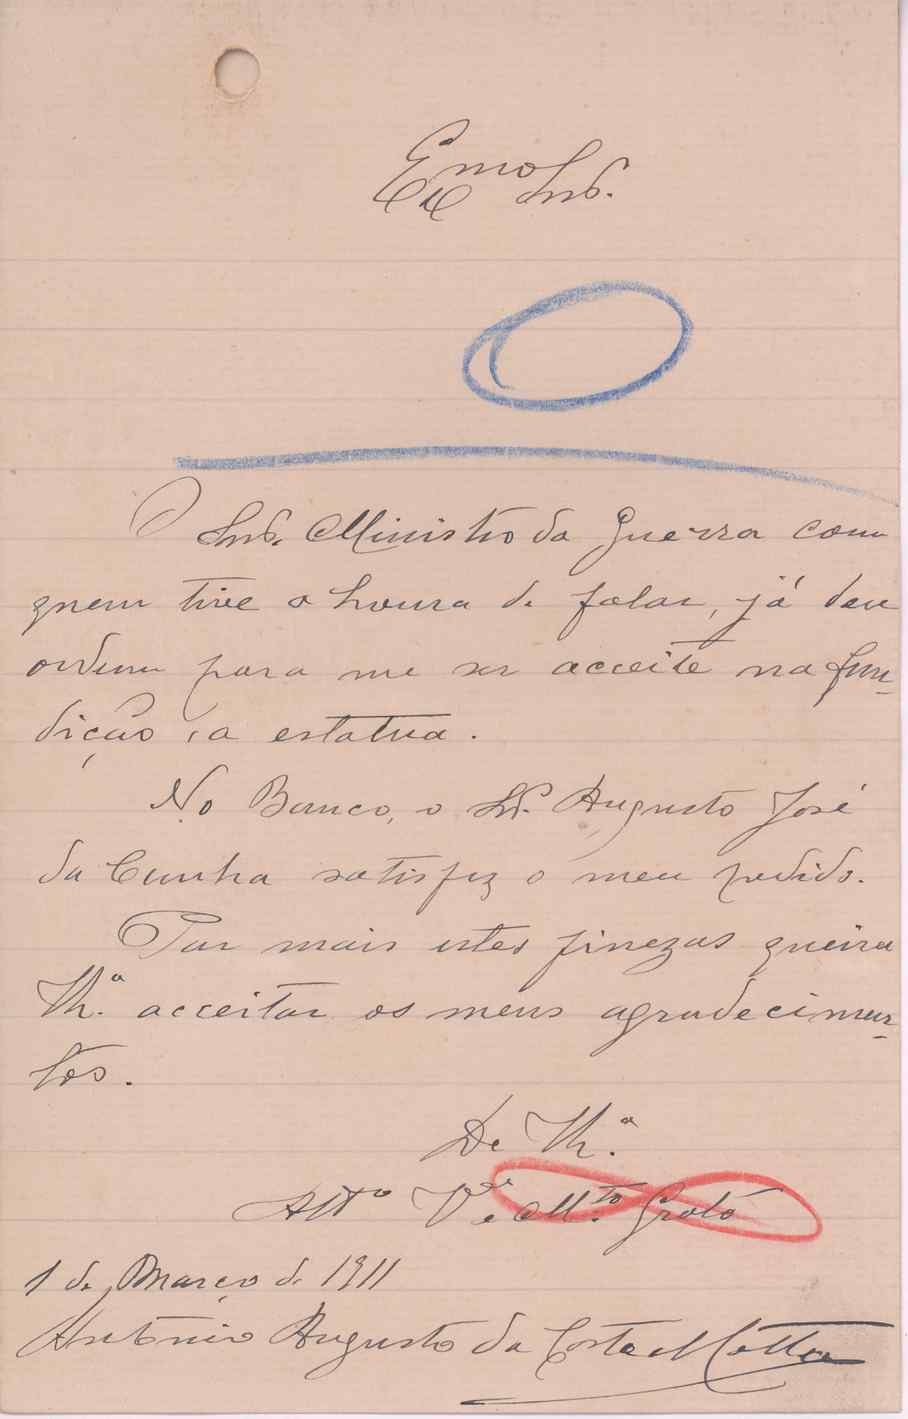 Exmo Snr.
O Snr. Ministro da Guerra com
quem tive a honra de falar, já deu
ordem para me ser acceite na fun-
dição, a estatua.
No Banco, o Sr. Augusto José
da Cunha satisfez o meu pedido.
Por mais estes finezas queira
V. Exª. acceitar os meus agradecimen-
tos.
De V. Exª.
Attº Vor e Mto. Grato
1 de Março de 1911
António Augusto da Costa Motta